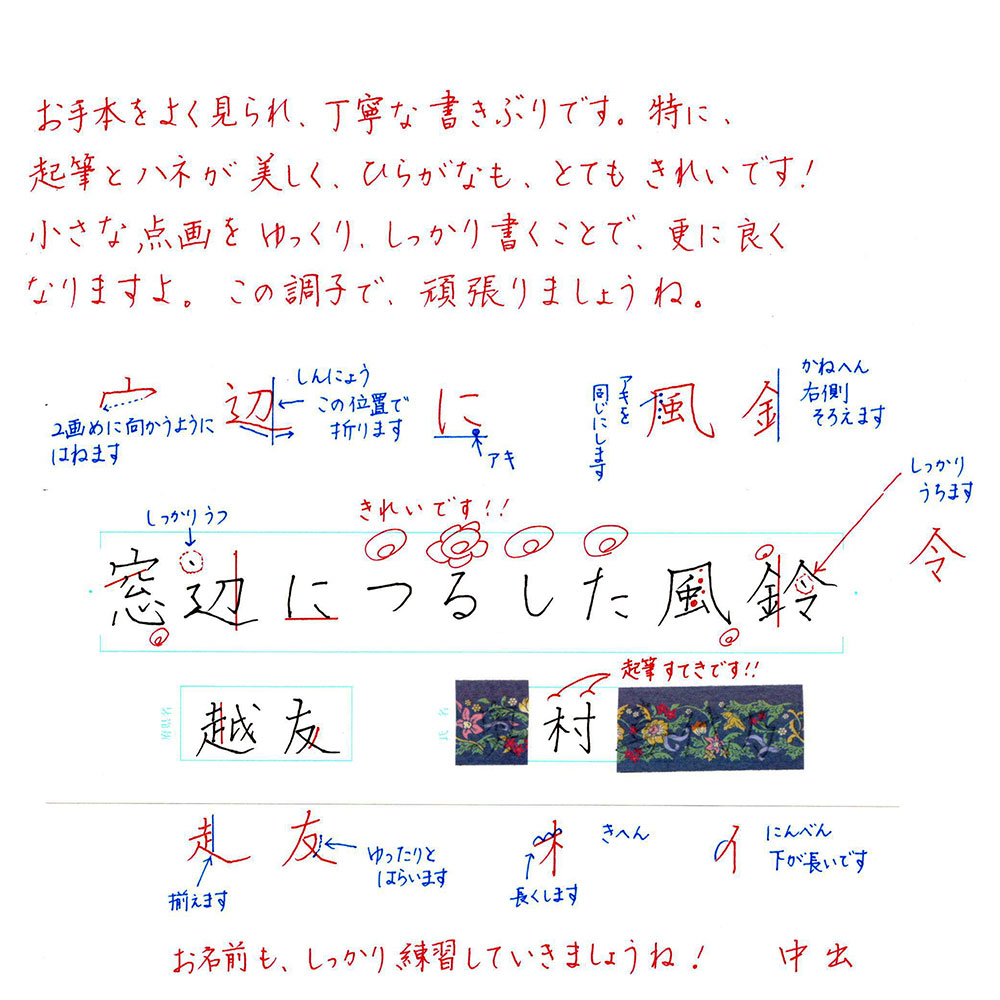 お手本をよく見られ、丁寧な書きぶりです。特に、
起筆とハネが美しく、ひらがなも、とてもきれいです!
小さな点画をゆっくり、しっかり書くことで、更に良く
なりますよ。この調子で、頑張りましょうね。
宀
2画めに向かうように
はねます
辺
しんにょう
この位置で
折ります
に
アキ
アキを
同じにします
風
金
かねへん
右側
そろえます
しっかり
うちます
令
しっかりうつ
きれいです!!
窓辺につるした風鈴
起筆すてきです!!
府県名
越友
氏名
村
走
揃えます
友
ゆったりと
はらいます
木
きへん
長くします
イ
にんべん
下が長いです
お名前も、しっかり練習していきましょうね!
中出